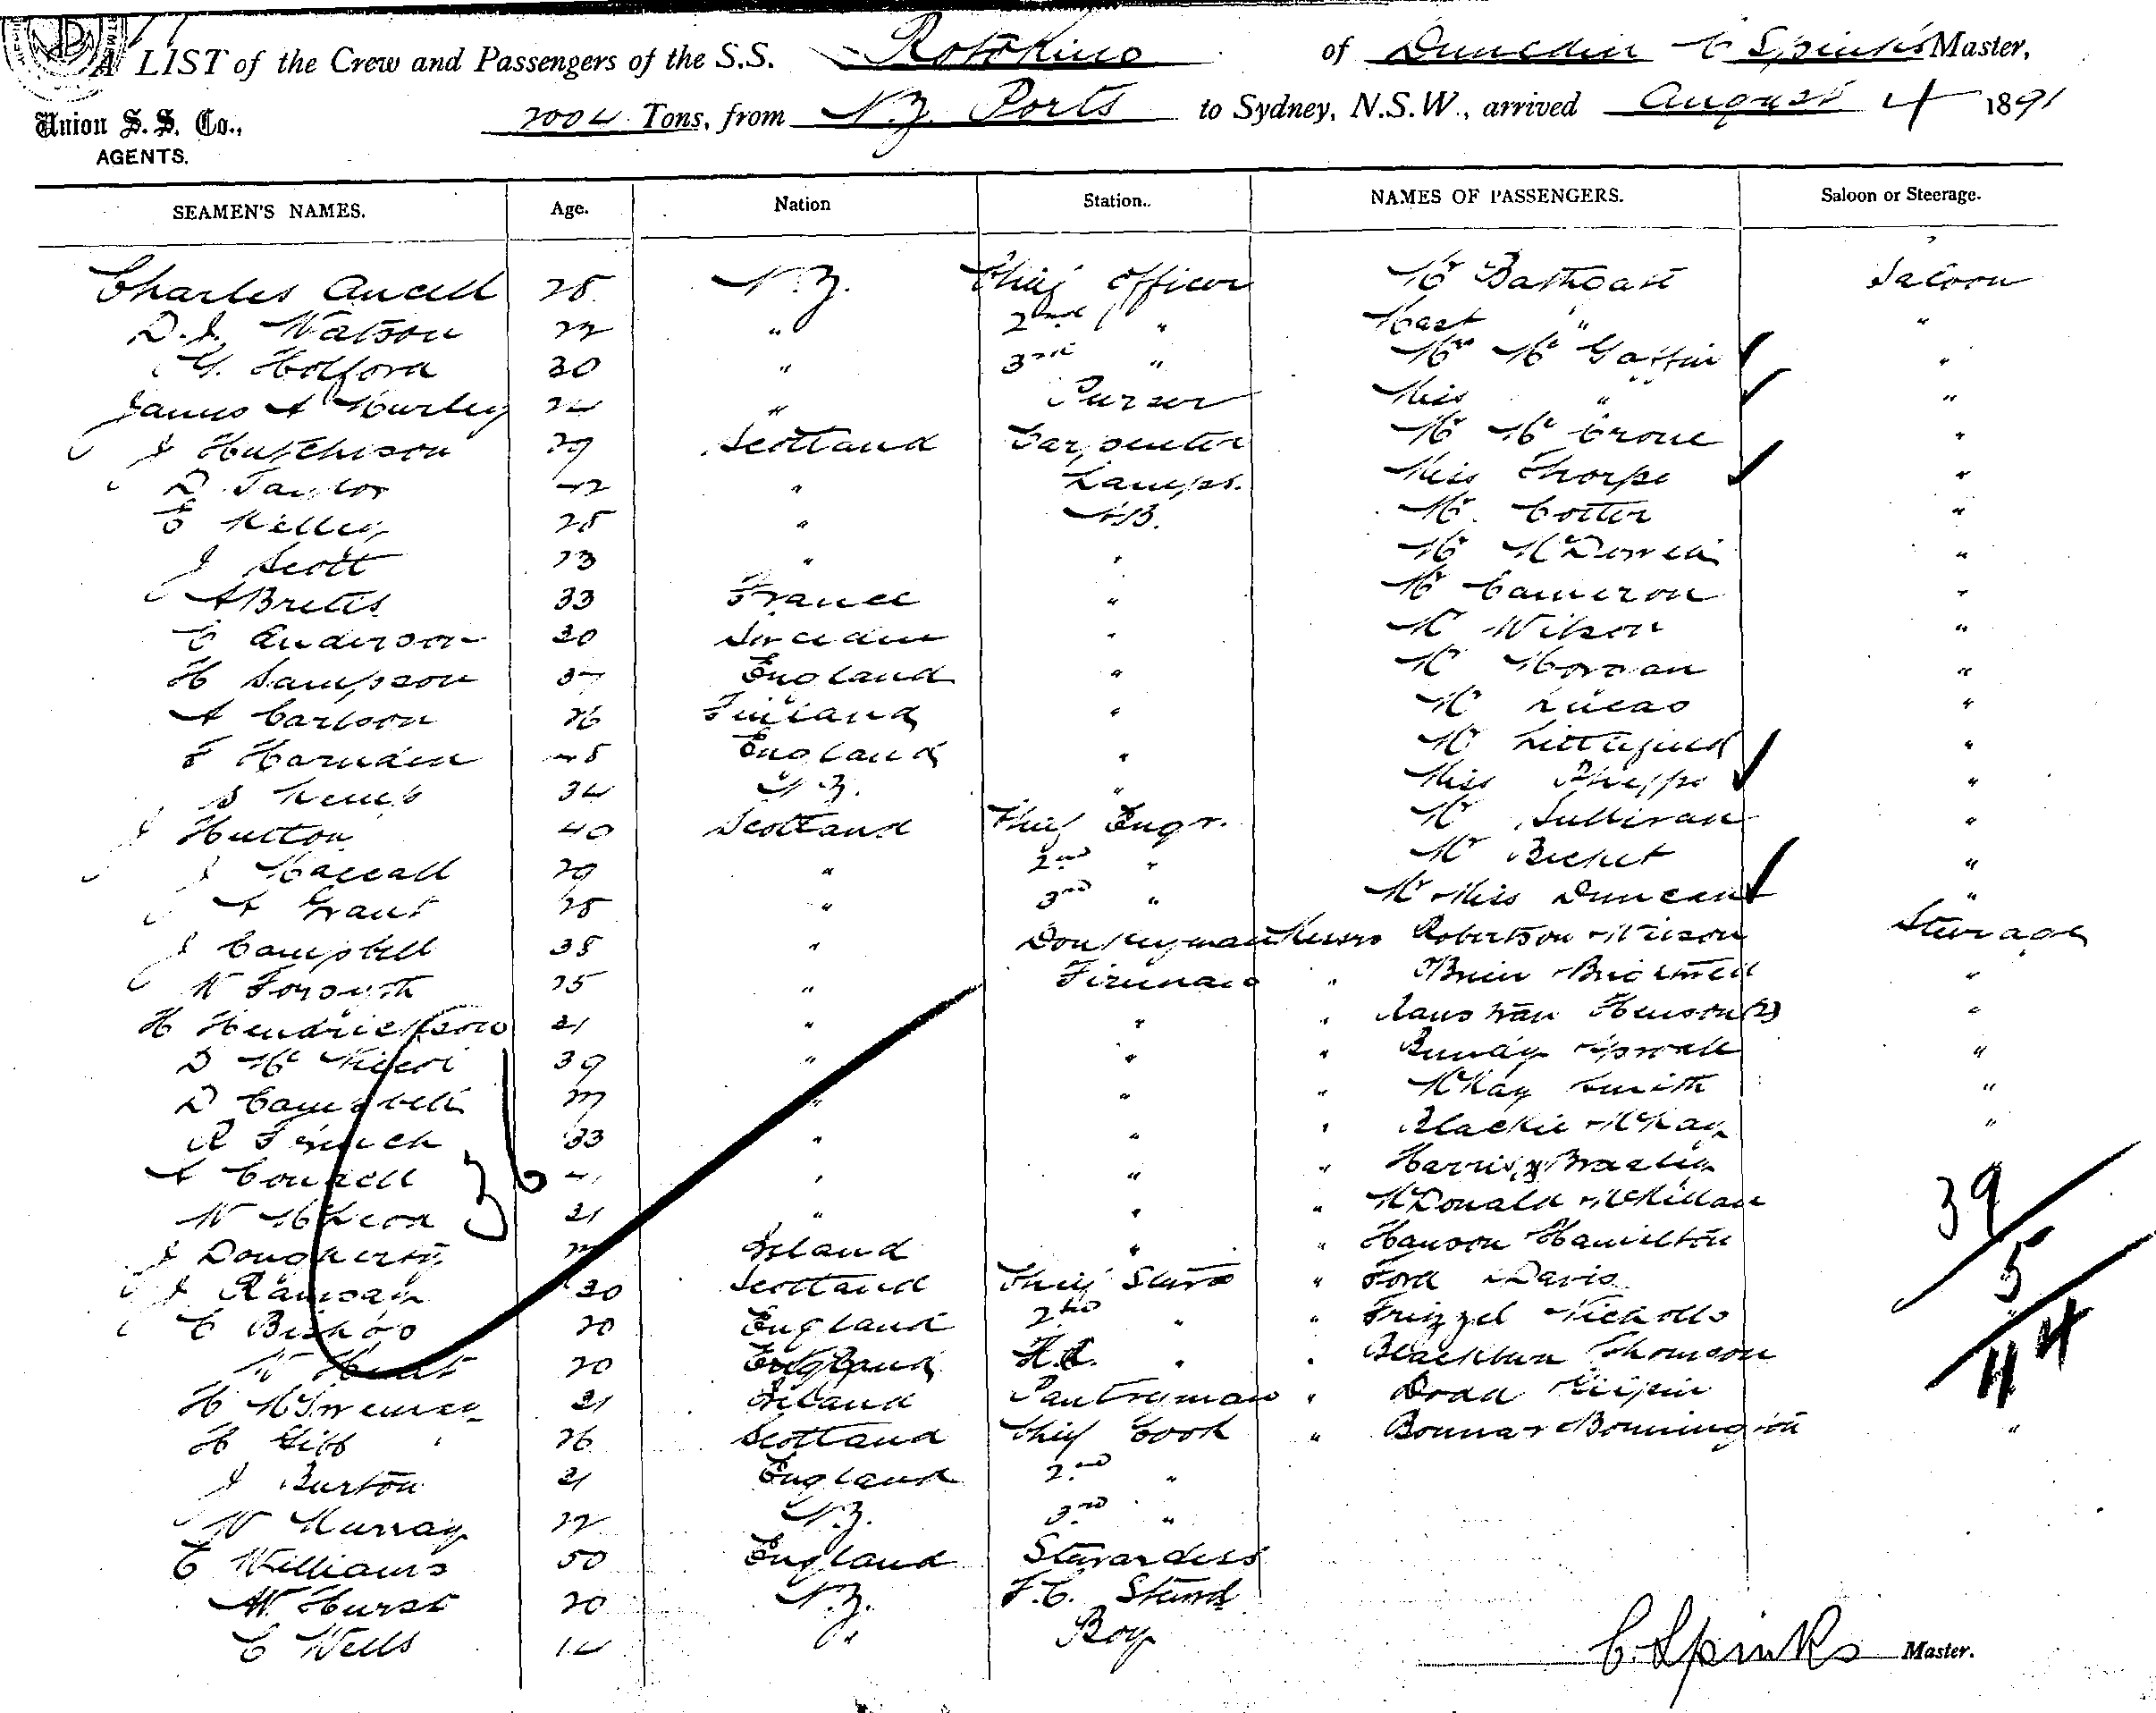 A LIST of the Crew and Passengers of the S.S. Rotokino of Dunedin C Spinks Master,
Union S. S. Co., 2004 Tons, from N.Z. Ports to Sydney, N.S.W., arrived August 4 1891
AGENTS.
SEAMEN'S NAMES. Age. Nation Station. NAMES OF PASSENGERS. Saloon or Steerage.
Charles Ancell 28 N.Z. Chief Officer Mr Bathgate Saloon
D.J. Watson 22 " 2nd " Mast " "
G. Holford 30 " 3rd " Mrs Mc Gaffin "
James A Hurley 24 " Purser Miss " "
J Hutchison 29 Scotland Carpenter Mr Mc Crone "
D Taylor 42 " Lamps. Miss Thorpe "
E Kelley 28 " AB. Mr Cotter "
J Scott 23 " " Mr McDowell "
A Bretes 33 France " Mr Cameron "
C Anderson 30 Sweden " Mr Wilson "
H Sampson 37 England " Mr Morgan "
A Carlson 26 Finland " Mr Lucas "
F Harnden 48 England " Mr Littlefield "
S Kemp 34 N.Z. " Miss Phipps "
J Hutton 40 Scotland Chief Engr. Mr Sullivan "
J Maccall 29 " 2nd " Mr Becket "
A Grant 28 " 3rd " Mr Miss Duncan "
J Campbell 38 " Donkeyman Messrs Robertson Wilson Steerage
W Forsyth 25 " Firemans " OBrien "
H Hendrickson 21 " " " Henson (2) "
D Mc 39 " " " Bunday "
D Campbell 27 " " " McKay Smith "
R French 33 " " " Blackie McKay "
A Connell 41 " " " Harris "
W McLeod 21 " " " McDonald McMillan
J Dougherty Ireland " " Hanson Hamilton
J Ramsay 30 Scotland Chief Stwd " Ford Davis
C Bishop 20 England 2nd " " Frizzel Nicholls
W Hunt 20 England " " Blackburn Thomson
H McSweeney 21 Ireland Pantryman " Dodd Gilpin
H Giff 26 Scotland Chief Cook " Bonnar Bonnington "
J Burton 21 England 2nd "
W Murray 22 N.Z. 3rd "
C Williams 50 England Stewardess
W. Hurst 20 N.Z. F.C. Stwd
C Wells 14 " Boy
36
39
5
44
C. Spinks Master.